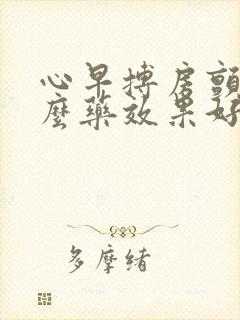 心早搏房颤
麼藥效果好
多摩绪